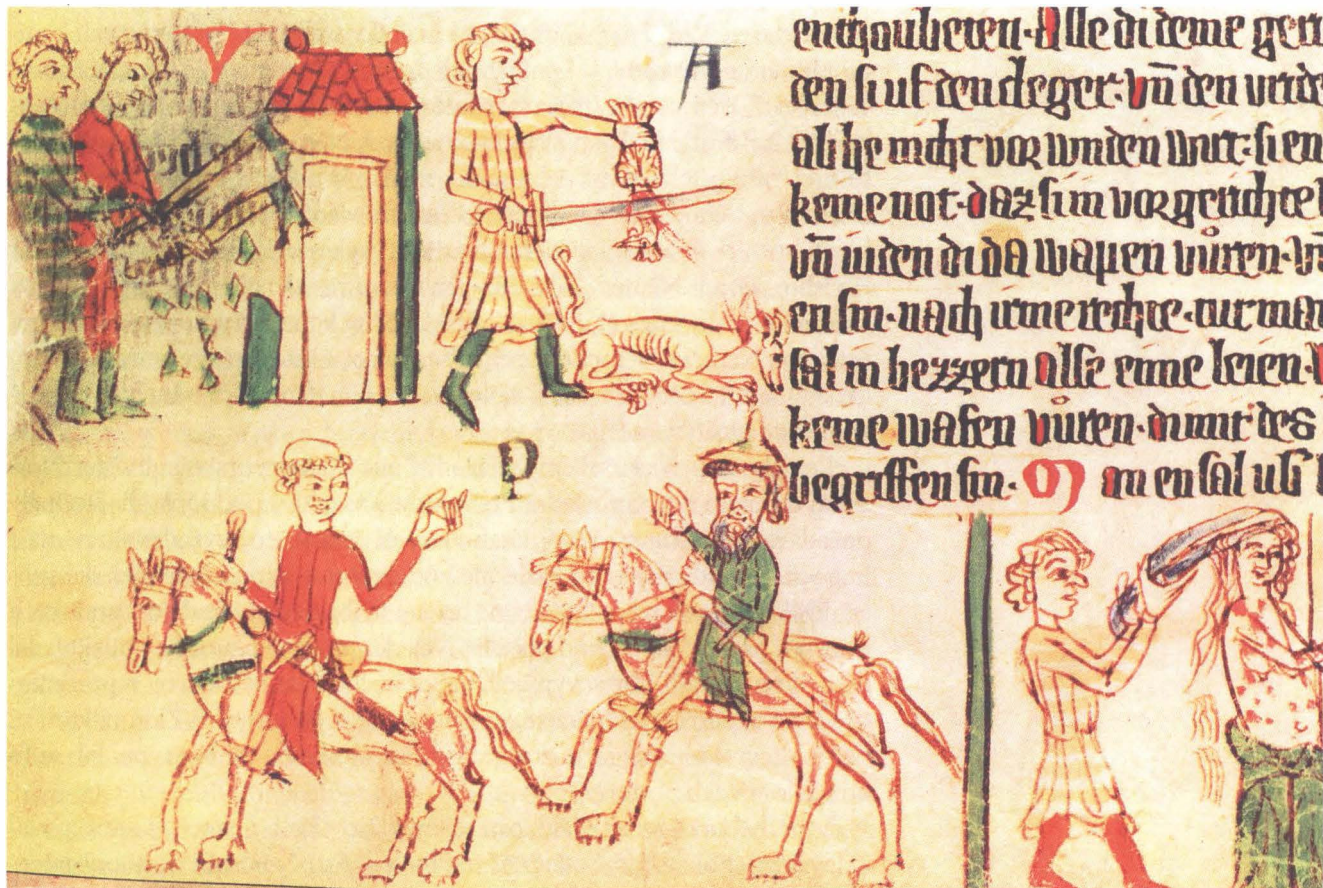 V
A
P
enthoubeten. Alle di deme geri
den si uf den cleger: vñ den vride
ab he nicht vor wnden wirt: si en
keme not. daz si in vor gerichte
vñ iuden di da wapen vůren. vñ
en sin. nach irme rechte. tut man
sal in bezzern alse eime leien.
keine wafen vůren. di mit des
begriffen sin. M an en sal uf